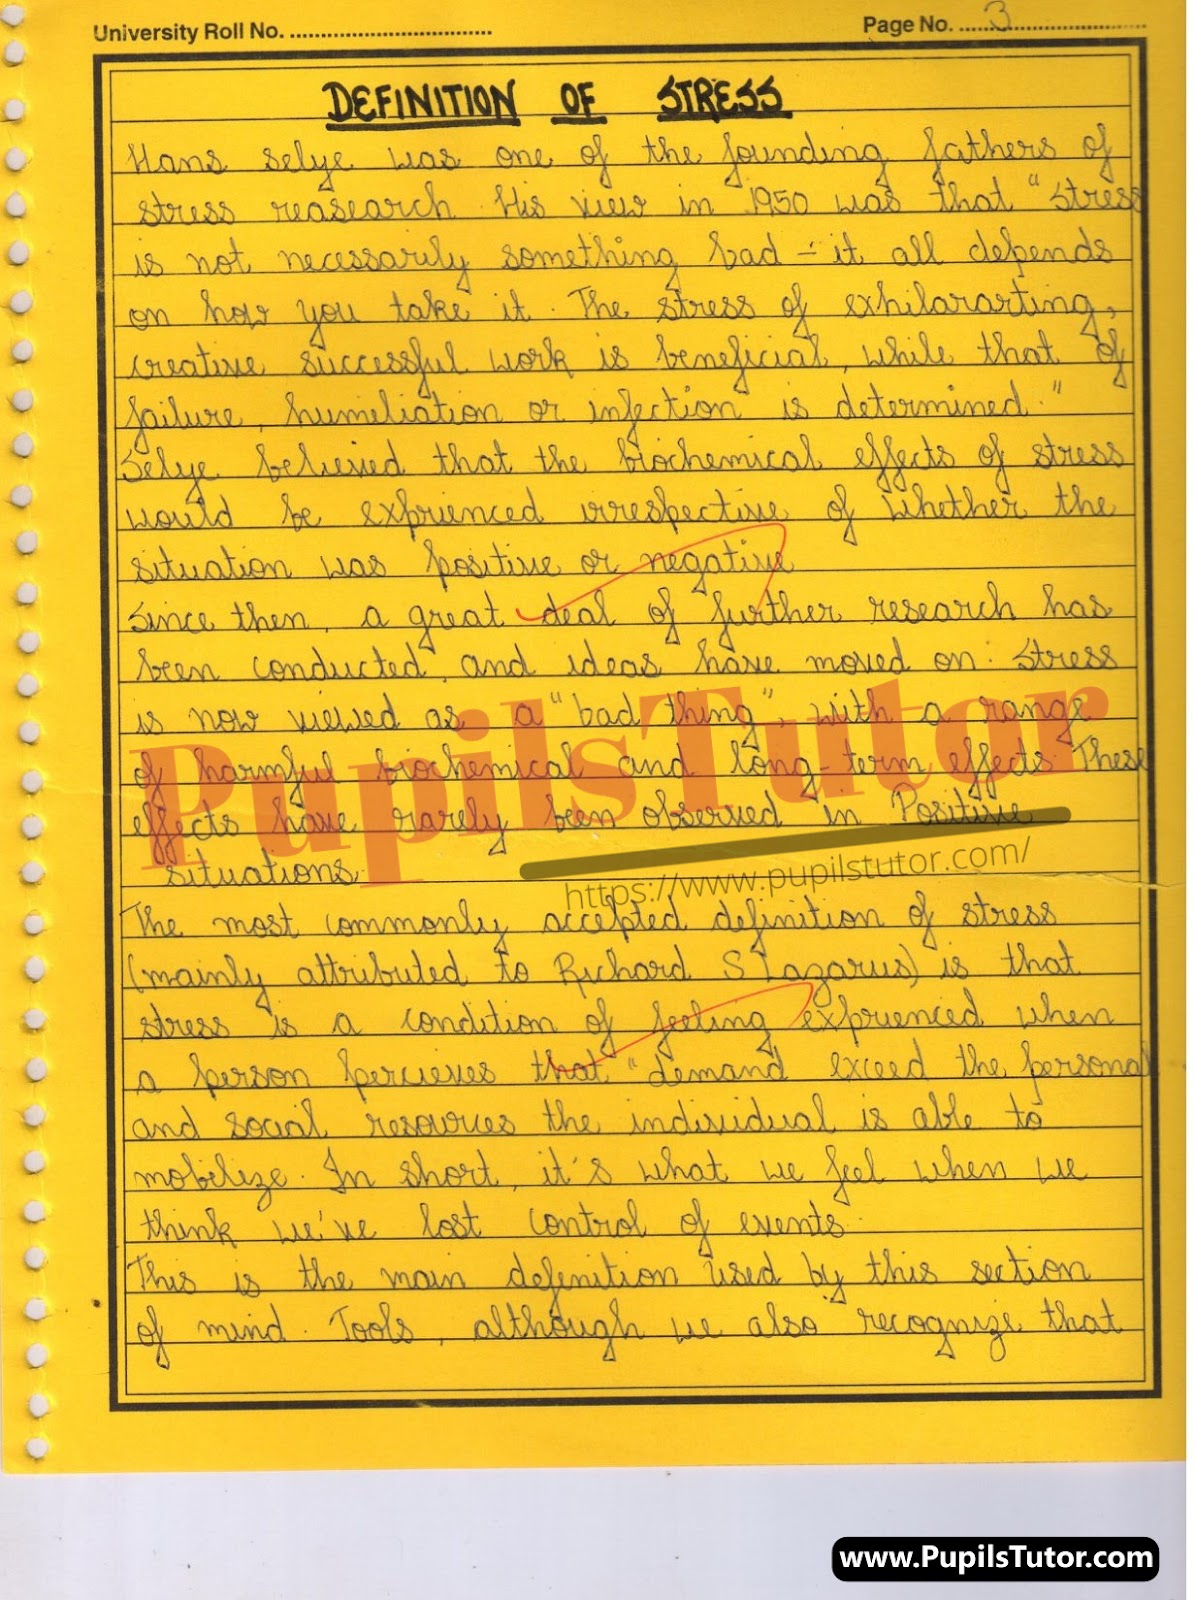 University Roll No. ..................................
Page No. ......3..........................
DEFINITION OF STRESS
Hans selye was one of the founding fathers of
stress reasearch. His view in 1950 was that "stress
is not necessarily something bad - it all depends
on how you take it. The stress of exhilararting,
creative successful work is beneficial, while that of
failure, humeliation or infection is determined."
Selye believed that the biochemical effects of stress
would be exprienced irrespective of whether the
situation was positive or negative
Since then, a great deal of further research has
been conducted, and ideas have moved on. Stress
is now viewed as a "bad thing", with a range
of harmful biochemical and long-term effects. These
effects have rarely been observed in Positive
situations.
The most commonly accepted definition of stress
(mainly attributed to Richard S Lazarus) is that
stress is a condition of feeling exprienced when
a person percieves that "demand exceed the personal
and social resources the individual is able to
mobilize. In short, it's what we feel when we
think we've lost control of events.
This is the main defenition used by this section
of mind. Tools, although we also recognize that
PupilsTutor
https://www.pupilstutor.com/
www.PupilsTutor.com